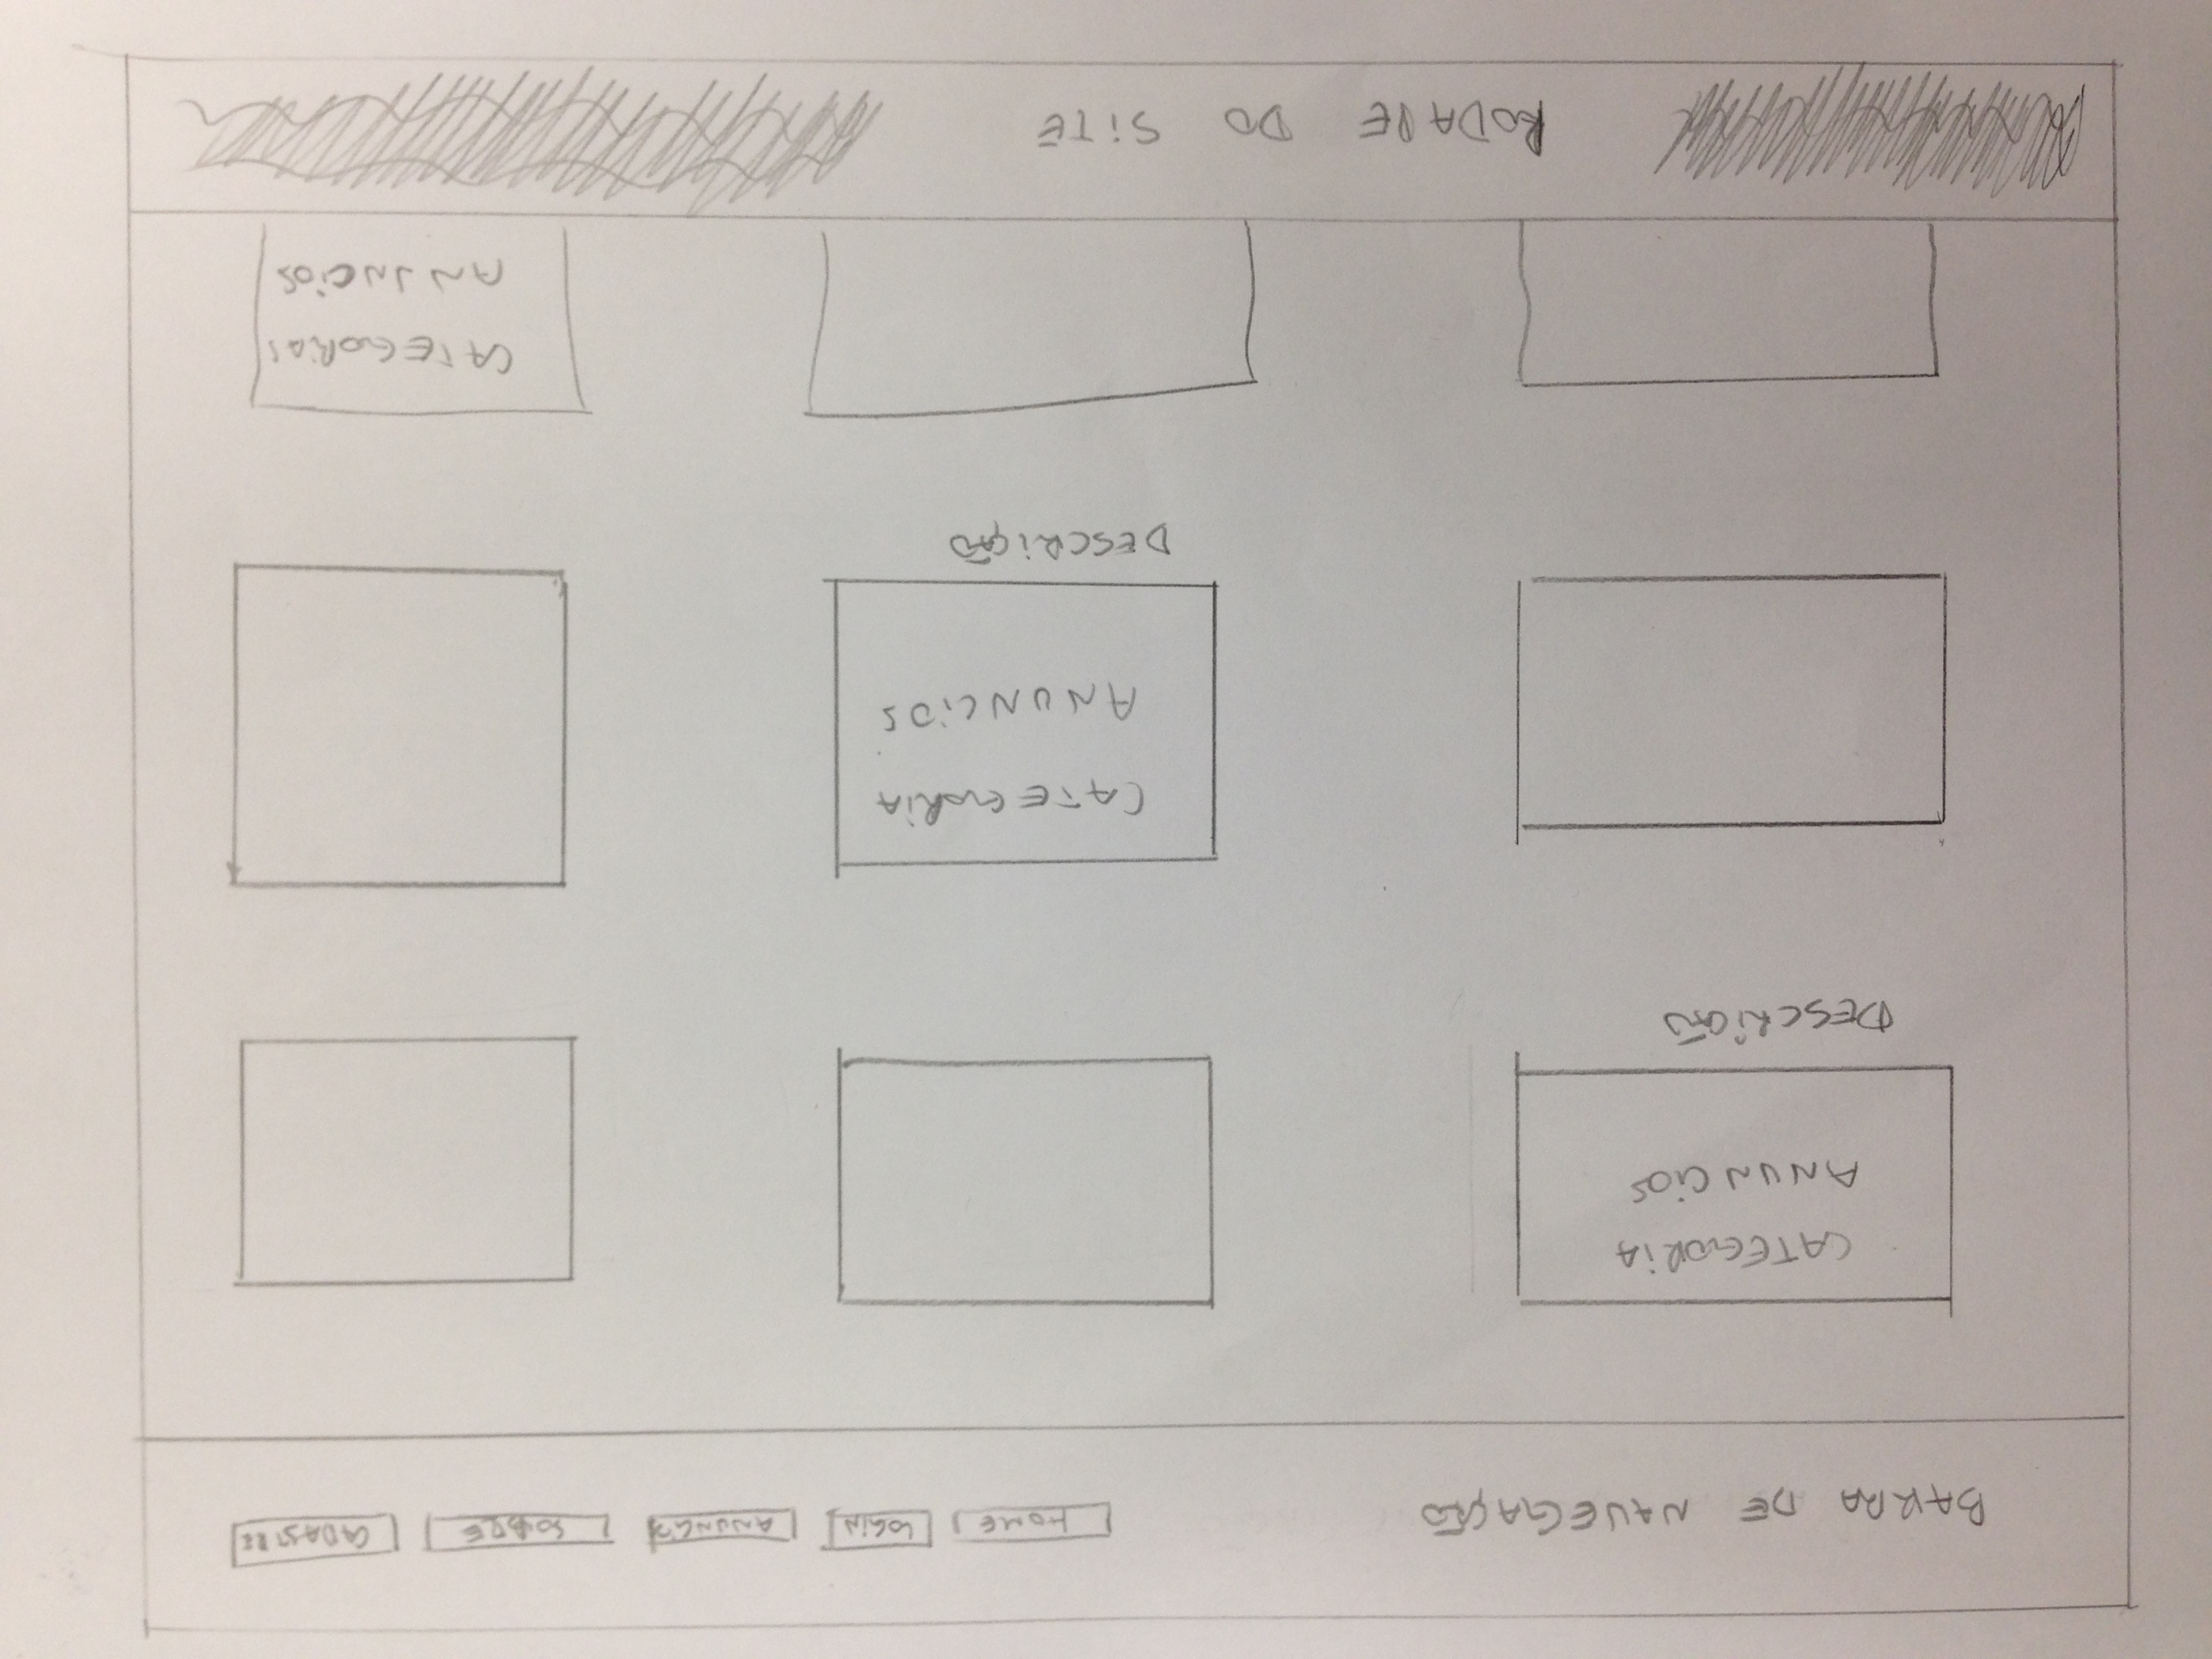 BARRA DE NAVEGAÇÃO
HOME LOGIN ANUNCIO SOBRE
CATEGORIA
ANUNCIOS
DESCRIÇÃO
CATEGORIA
ANUNCIOS
DESCRIÇÃO
CATEGORIAS
ANUNCIOS
RODAPE DO SITE